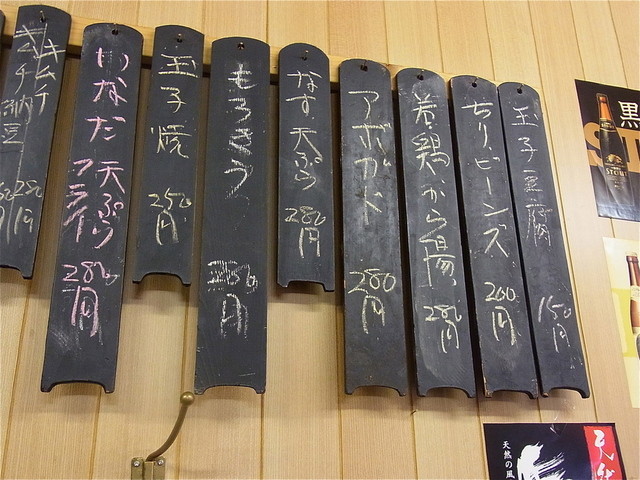 玉子豆腐 150円
ちりビーンズ 200円
若鶏から揚 280円
アボガド 280円
なす天ぷら 280円
もろきう 円
玉子焼 250円
いなだ 天ぷら
フライ 280円
キムチ
キムチ納豆
黒
STOUT
天然の風